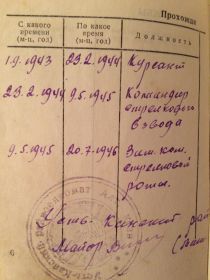 Прохожде
С какого времени (м-ц, год)
По какое время (м-ц, год)
Должность
1.9.1943 23.2.1944 Курсант
23.2.1944 9.5.1945 Командир
стрелкового
взвода
9.5.1945 20.7.1946 Зам. ком.
стрелковой
роты.
Майор
6